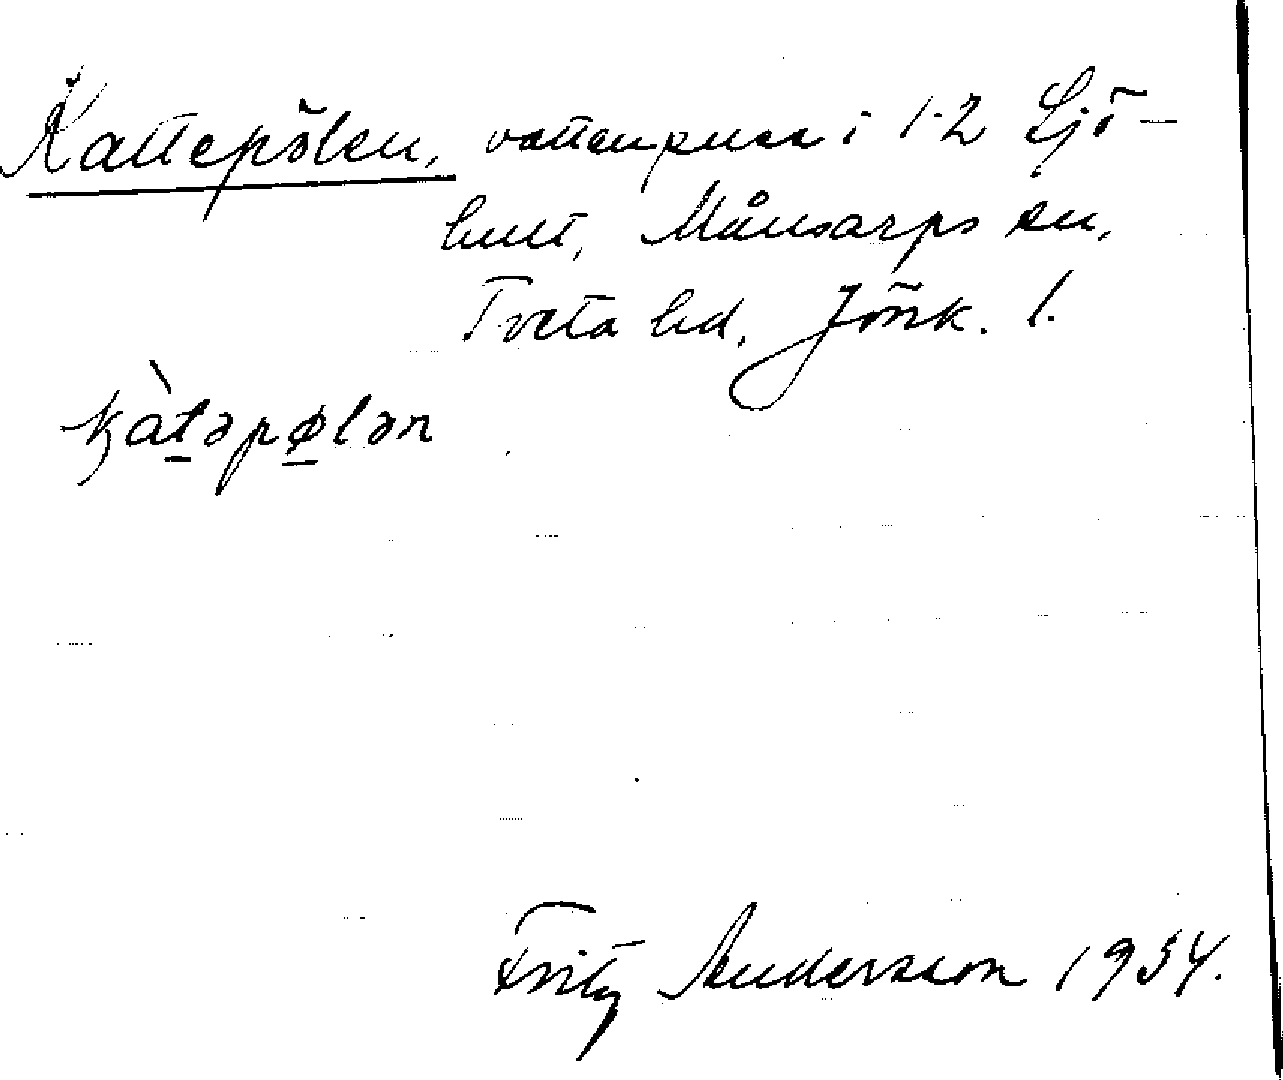 Kattepölen, vattenpuss i 1-2 Ljö-
hult, Månsarps sn,
Tveta hd, Jönk. l.
kàtəpølən
Fritz Andersson 1934.